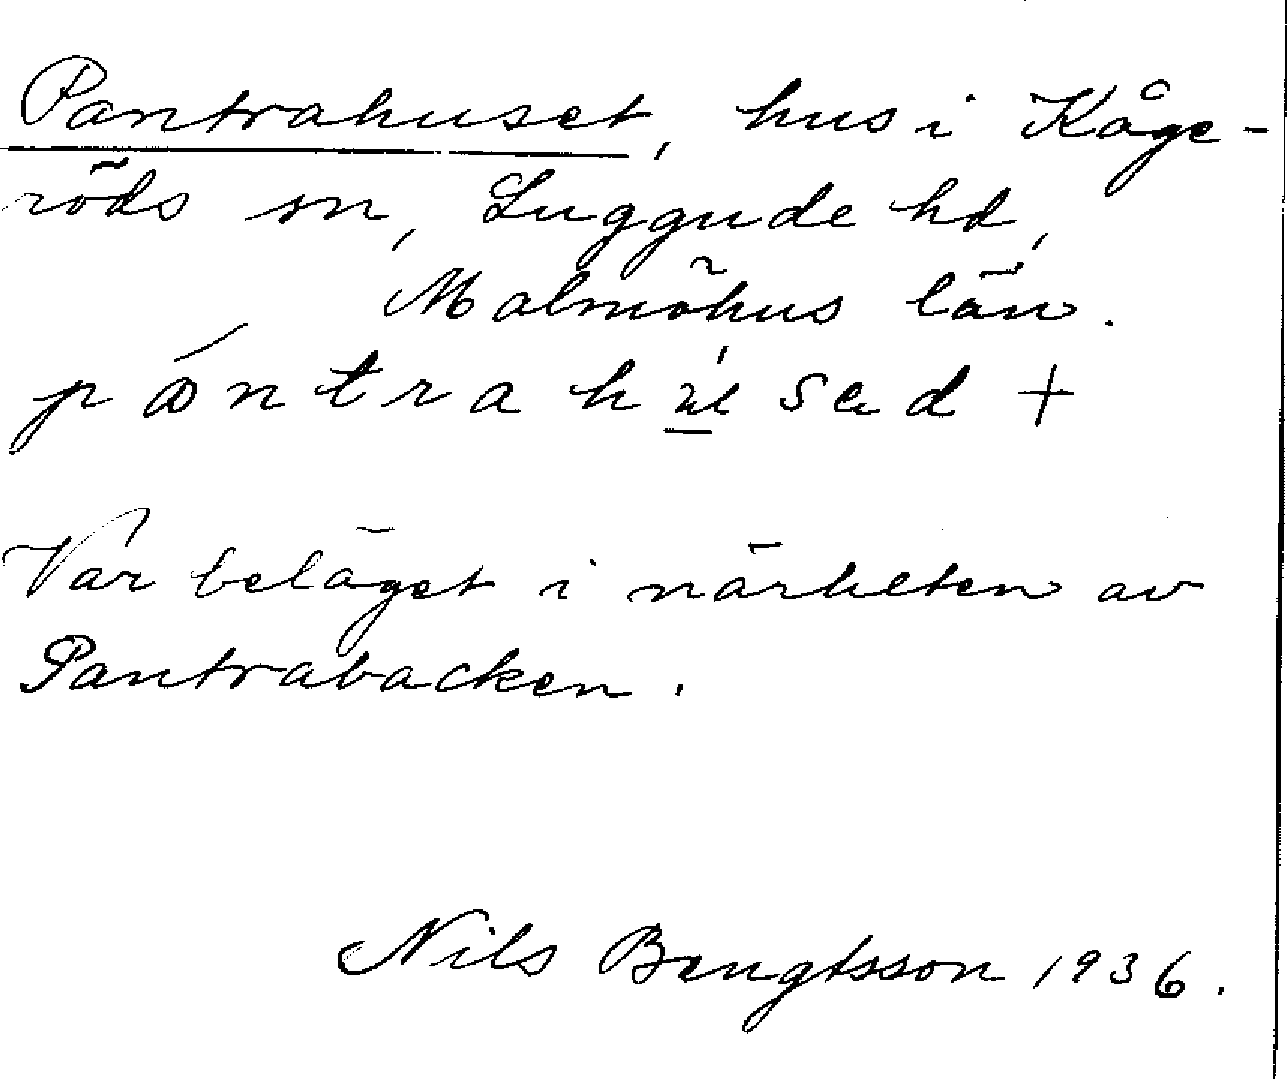 Pantrahuset, hus i Kåge-
röds sn, Luggude hd,
Malmöhus län.
pántrahu̲̍sed +
Var beläget i närheten av
Pantrabacken.
Nils Bengtsson 1936.